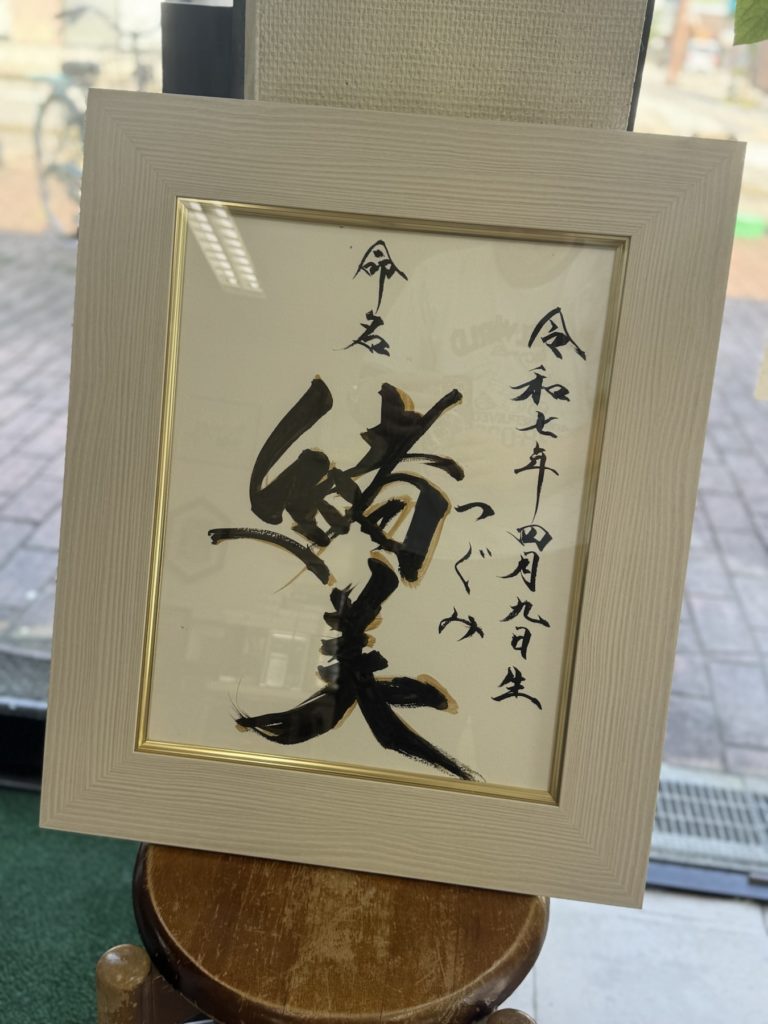 令和七年四月九日生
つぐみ
命名
緒美